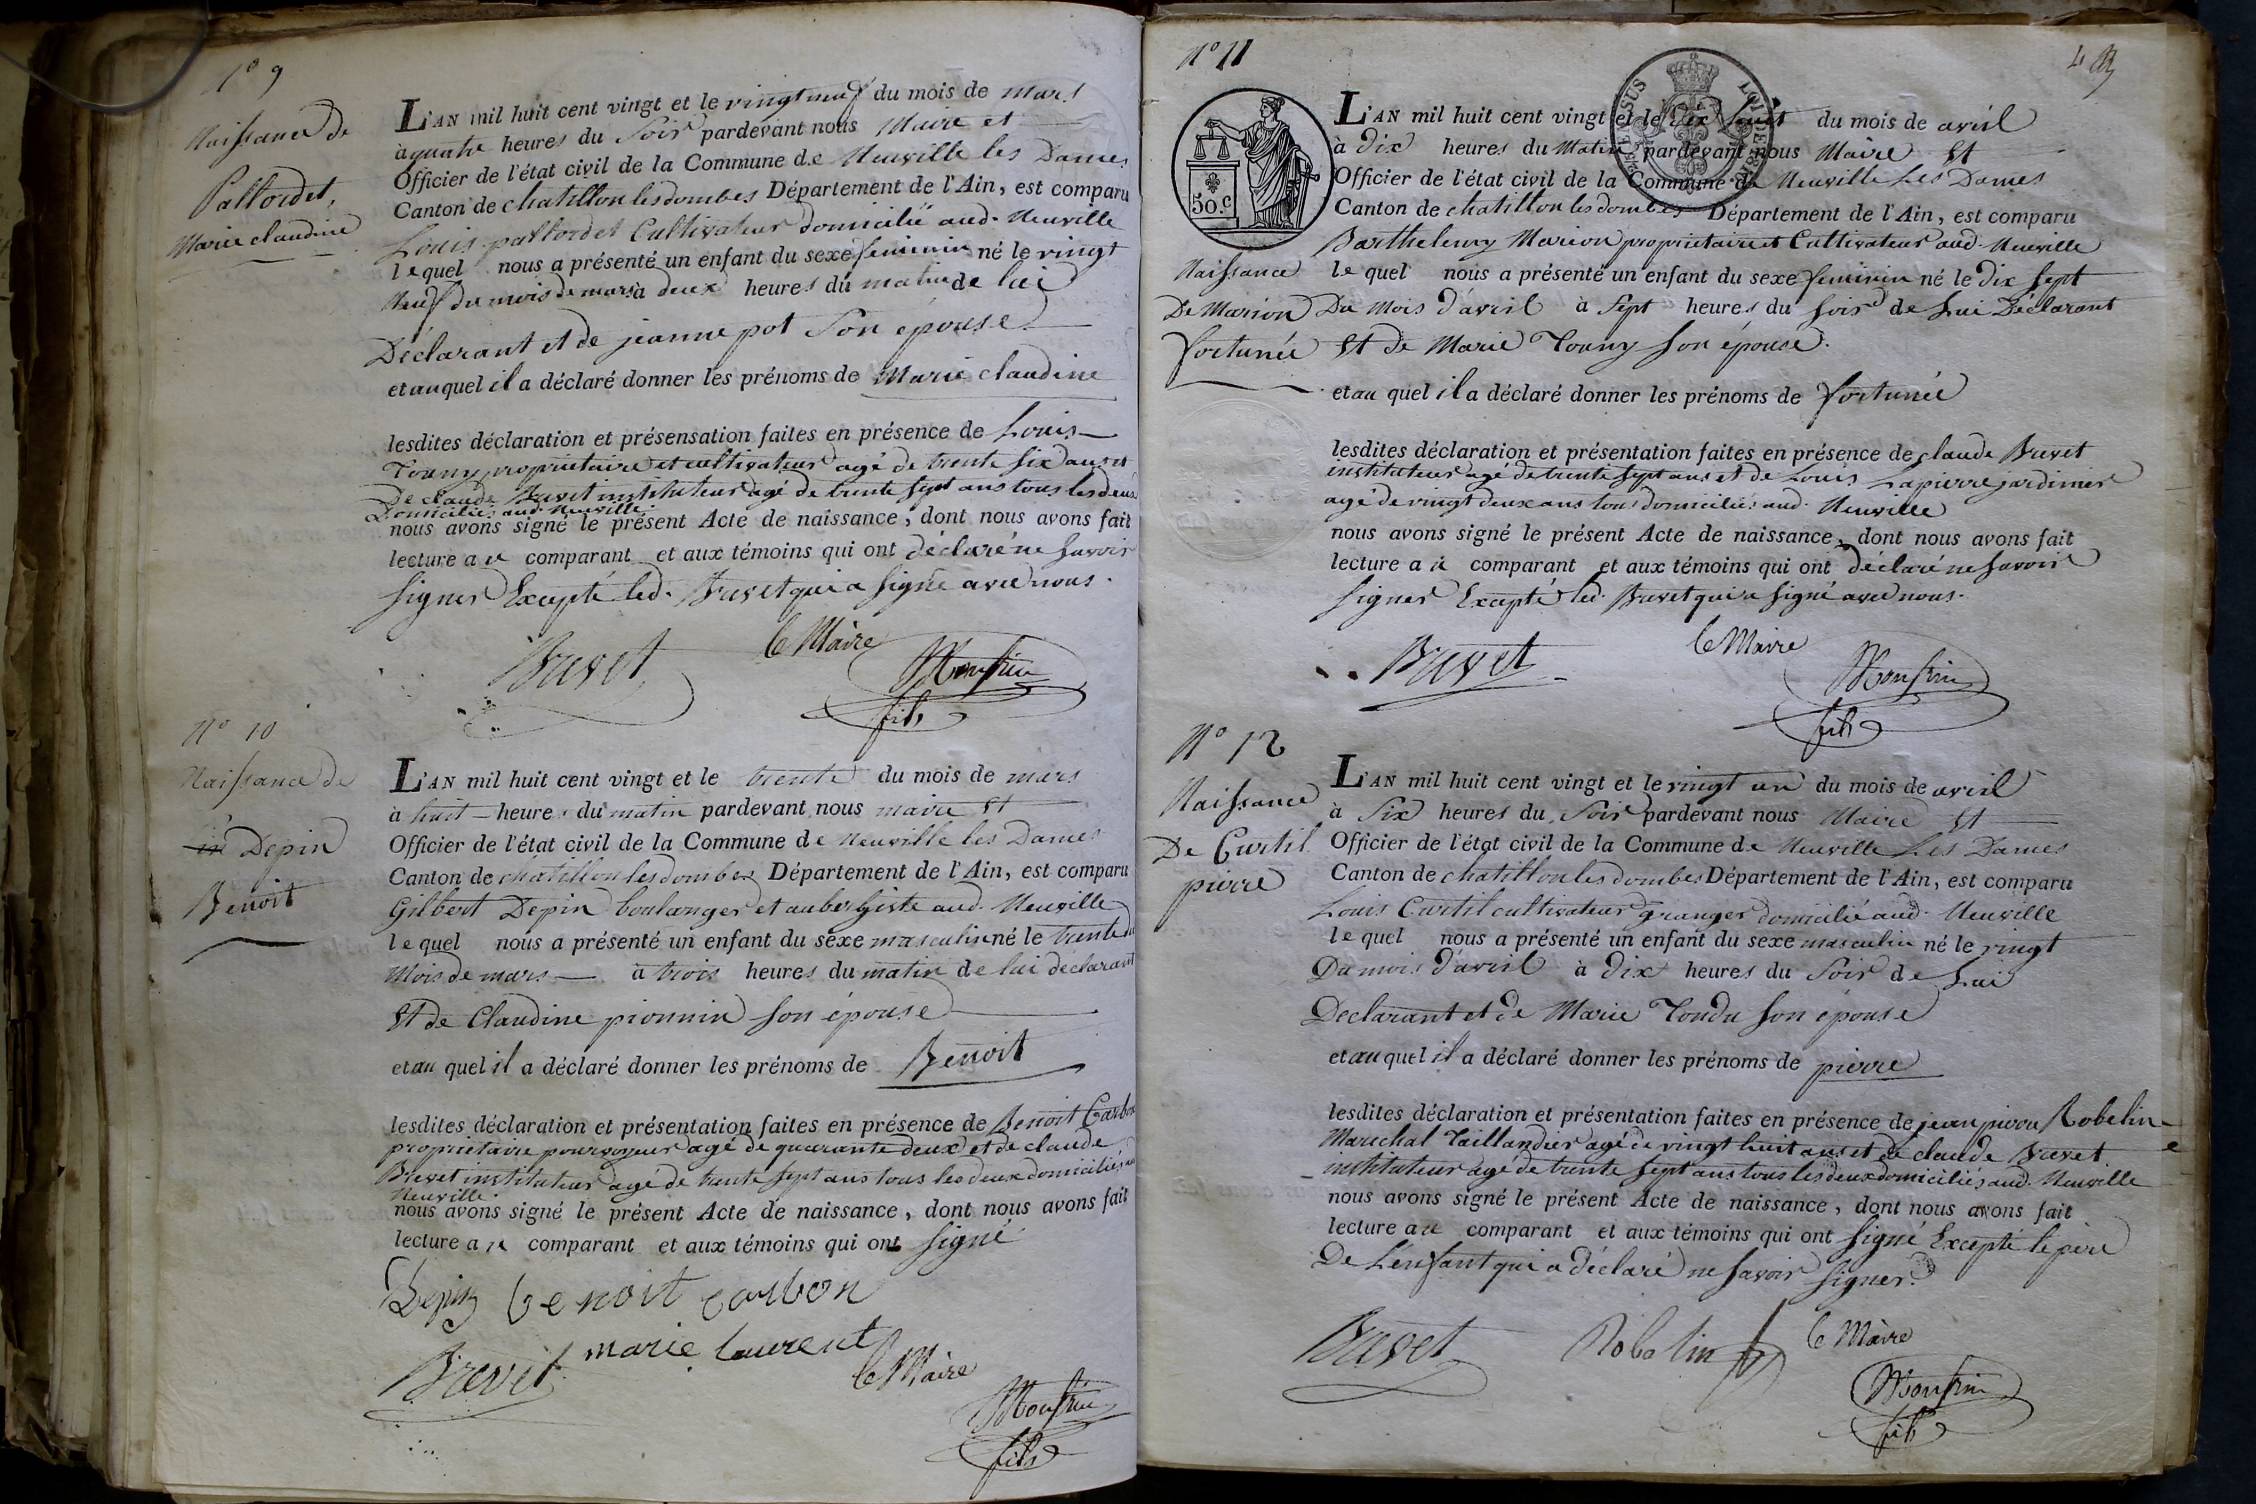 N° 9
Naissance de
Pallordet,
Marie claudine
L'AN mil huit cent vingt et le vingt neuf du mois de mars
à quatre heures du Soir pardevant nous Maire et
Officier de l'état civil de la Commune de Neuville les Dames
Canton de chatillon les dombes Département de l'Ain, est comparu
Louis pallordet Cultivateur domicilié aud. Neuville
lequel nous a présenté un enfant du sexe feminin né le vingt
Neuf du mois de mars à deux heures du matin de lui
Déclarant et de jeanne pot Son épouse
et auquel il a déclaré donner les prénoms de Marie claudine
lesdites déclaration et présensation faites en présence de Louis
Tonny propriétaire et cultivateur agé de trente six ans et
De claude Brevet instituteur agé de trente sept ans tous les deux
Domiciliés aud. Neuville.
nous avons signé le présent Acte de naissance, dont nous avons fait
lecture au comparant et aux témoins qui ont déclaré ne savoir
signer Excepté led. Brevet qui a signé avec nous.
Brevet le Maire
Monfrin
fils
N° 10
Naissance de
Depin
Benoit
L'AN mil huit cent vingt et le trente du mois de mars
à huit heures du matin pardevant nous maire et
Officier de l'état civil de la Commune de Neuville les Dames
Canton de chatillon les dombes Département de l'Ain, est comparu
Gilbert Depin boulanger et aubergiste aud. Neuville
lequel nous a présenté un enfant du sexe masculin né le trente du
Mois de mars à trois heures du matin de lui déclarant
Et de Claudine pionnin son épouse
et au quel il a déclaré donner les prénoms de Benoit
lesdites déclaration et présentation faites en présence de Benoit Carbon
propriétaire pourvoyeur agé de quarante deux et de claude
Brevet instituteur agé de trente sept ans tous les deux domiciliés aud
Neuville.
nous avons signé le présent Acte de naissance, dont nous avons fait
lecture au comparant et aux témoins qui ont signé
Depin benoit carbon
Brevet marie laurent
le Maire
Monfrin
fils
N° 11
50.c
Naissance
De Marion
fortunée
L'AN mil huit cent vingt et le dix huit du mois de avril
à Dix heures du Matin pardevant nous Maire Et
Officier de l'état civil de la Commune de Neuville Les Dames
Canton de chatillon les dombes Département de l'Ain, est comparu
Barthelemy Marion propriétaire et Cultivateur aud. Neuville
lequel nous a présenté un enfant du sexe feminin né le dix sept
Du Mois d'avril à Sept heures du soir de Lui Déclarant
Et de Marie Tonny son épouse.
et au quel il a déclaré donner les prénoms de fortunée
lesdites déclaration et présentation faites en présence de claude Brevet
instituteur agé de trente sept ans et de Louis Lapierre jardinier
agé de vingt deux ans tous domiciliés aud. Neuville
nous avons signé le présent Acte de naissance, dont nous avons fait
lecture au comparant et aux témoins qui ont déclaré ne savoir
signer Excepté led. Brevet qui a signé avec nous.
Brevet le Maire
Monfrin
fils
N° 12
Naissance
De Curtil
pierre
L'AN mil huit cent vingt et le vingt un du mois de avril
à Six heures du Soir pardevant nous Maire Et
Officier de l'état civil de la Commune de Neuville Les Dames
Canton de chatillon les dombes Département de l'Ain, est comparu
Louis Curtil cultivateur granger domicilié aud. Neuville
lequel nous a présenté un enfant du sexe masculin né le vingt
Du mois d'avril à Dix heures du Soir de Lui
Déclarant et de Marie Tondu son épouse
et au quel il a déclaré donner les prénoms de pierre
lesdites déclaration et présentation faites en présence de jean pierre Robelin
Maréchal Taillandier agé de vingt huit ans et de claude Brevet
instituteur agé de trente sept ans tous les deux domiciliés aud. Neuville
nous avons signé le présent Acte de naissance, dont nous avons fait
lecture au comparant et aux témoins qui ont signé Excepté le père
De L'enfant qui a déclaré ne savoir signer.
Brevet Robelin le Maire
Monfrin
fils